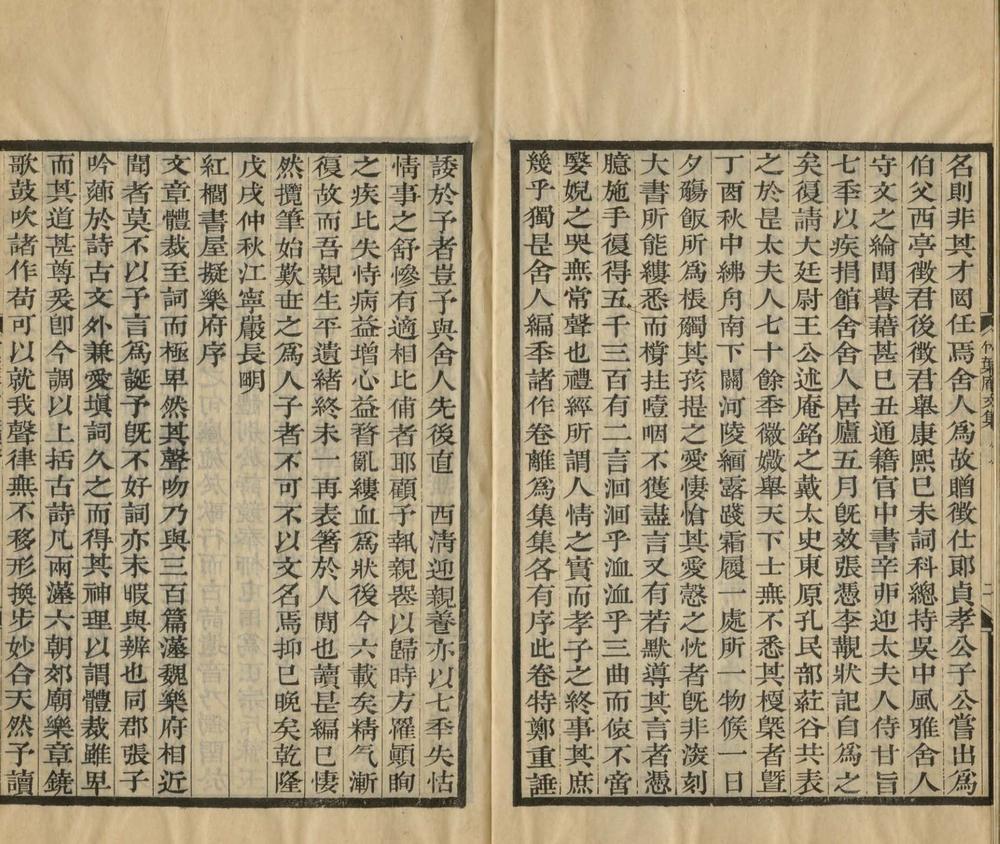 名則非其才罔任焉舍人爲故贈徵仕郎貞孝公子公嘗出爲
伯父西亭徵君後徵君舉康熙巳未詞科總持吳中風雅舍人
守文之綸閒譽藉甚巳丑通籍官中書辛卯迎太夫人侍甘旨
七秊以疾捐館舍舍人居廬五月旣效張憑李覯狀記自爲之
矣復請大廷尉王公述庵銘之戴太史東原孔民部葒谷共表
之於是太夫人七十餘秊徽媺舉天下士無不悉其榎槩者曁
丁酉秋中紼舟南下關河陵緬露踐霜履一處所一物候一日
夕觴飯所爲棖觸其孩提之愛悽愴其愛慤之忱者旣非淺刻
大書所能縷悉而橕拄噎咽不獲盡言又有若默導其言者憑
臆施手復得五千三百有二言洄洄乎洫洫乎三曲而偯不啻
嫛婗之哭無常聲也禮經所謂人情之實而孝子之終事其庶
幾乎獨是舍人編秊諸作卷離爲集集各有序此卷特鄭重諈
竹葉庵文集
二
諉於予者豈予與舍人先後直 西淸迎親養亦以七秊失怙
情事之舒慘有適相比俌者耶顧予執親喪以歸時方罹顚眴
之疾比失恃病益增心益瞀亂縷血爲狀後今六載矣精气漸
復故而吾親生平遺緒終未一再表箸於人閒也讀是編巳悽
然攬筆始歎世之爲人子者不可不以文名焉抑巳晚矣乾隆
戊戌仲秋江寧嚴長明
紅櫚書屋擬樂府序
文章體裁至詞而極卑然其聲吻乃與三百篇漢魏樂府相近
聞者莫不以予言爲誕予旣不好詞亦未暇與辨也同郡張子
吟薌於詩古文外兼愛塡詞久之而得其神理以謂體裁雖卑
而其道甚尊爰卽今調以上括古詩凡兩漢六朝郊廟樂章鐃
歌鼓吹諸作苟可以就我聲律無不移形換步妙合天然予讀